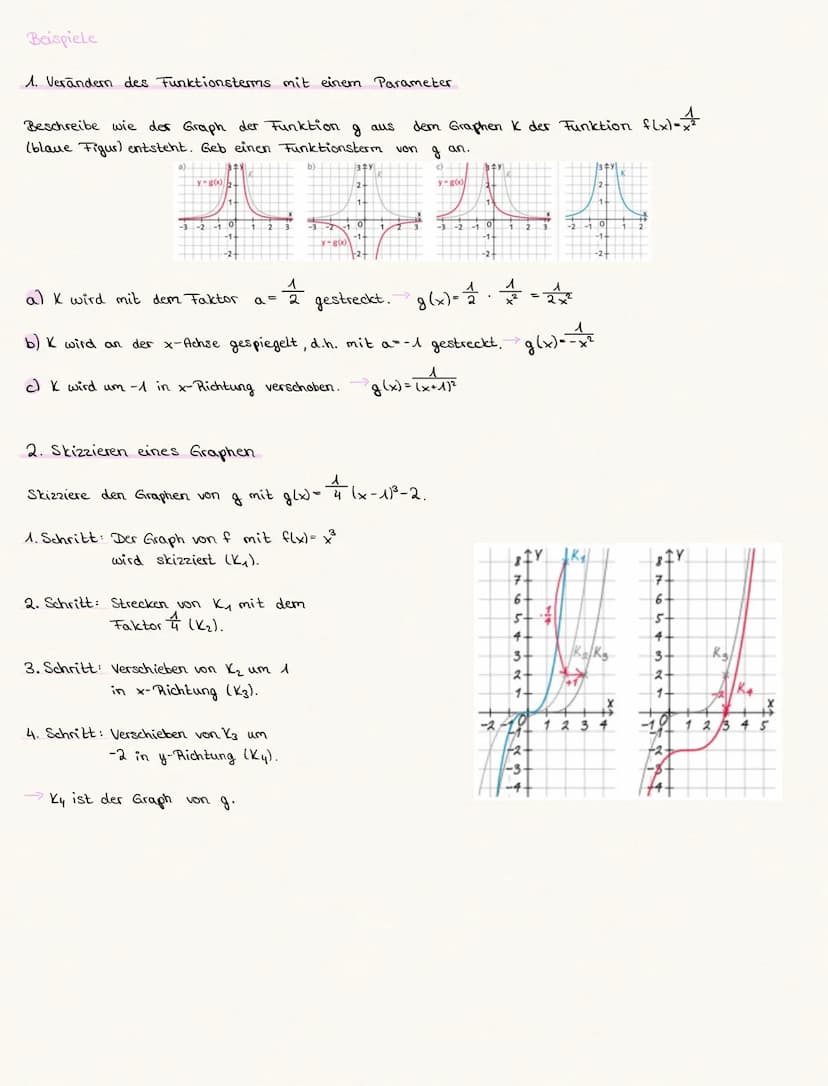 Beispiele
1. Verändern des Funktionsterms mit einem Parameter
Beschreibe wie der Graph der Funktion g aus dem Graphen K der Funktion f(x)=1/x²
(blaue Figur) entsteht. Geb einen Funktionsterm von g an.
a) y=g(x) K y x 3 2 1 0 -1 -2 -3 -2 -1 1 2 3
b) y=g(x) K y x 3 2 1 0 -1 -2 -3 -2 -1 1 2 3
c) y=g(x) K y x 3 2 1 0 -1 -2 -3 -2 -1 1 2 3
K y x 3 2 1 0 -1 -2 -2 -1 1 2
a) K wird mit dem Faktor a=1/2 gestreckt. → g(x)=1/2 · 1/x² = 1/2x²
b) K wird an der x-Achse gespiegelt, d.h. mit a=-1 gestreckt. → g(x)=1/-x²
c) K wird um -1 in x-Richtung verschoben. → g(x)=1/(x+1)²
2. Skizzieren eines Graphen
Skizziere den Graphen von g mit g(x)=1/4(x-1)³-2.
1. Schritt: Der Graph von f mit f(x)=x³
wird skizziert (K₁).
2. Schritt: Strecken von K₁ mit dem
Faktor 1/4 (K₂).
3. Schritt: Verschieben von K₂ um 1
in x-Richtung (K₃).
4. Schritt: Verschieben von K₃ um
-2 in y-Richtung (K₄).
→ K₄ ist der Graph von g.
8 y K₁ 7 6 5 ·1/4 4 3 K₂ K₃ 2 +1 1 x -2 -1 0 1 2 3 4 -1 -2 -3 -4
8 y 7 6 5 4 3 K₃ 2 1 -2 K₄ x -1 0 1 2 3 4 5 -1 -2 -3 -4